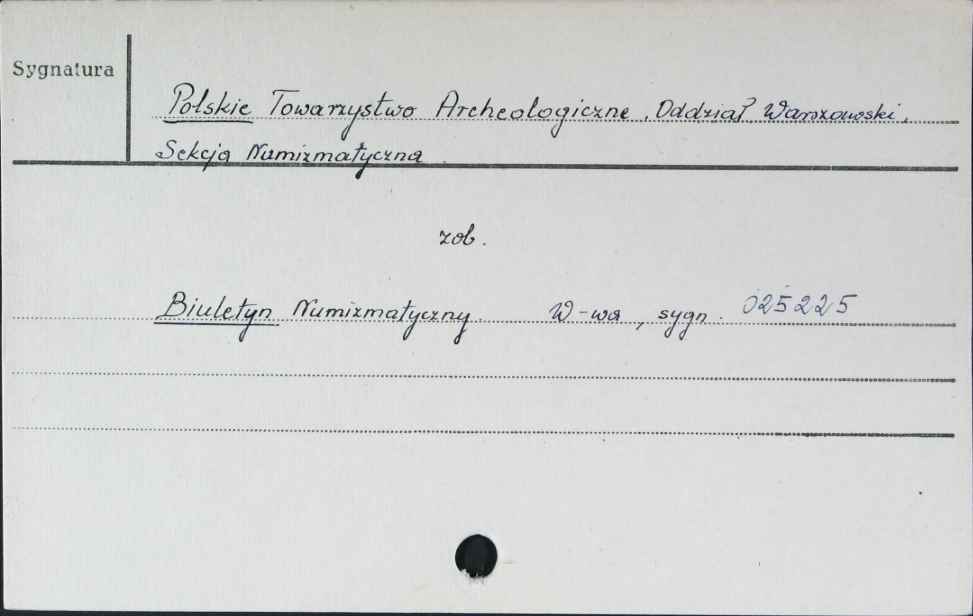 Sygnatura
Polskie Towarzystwo Archeologiczne, Oddział Warszawski,
Sekcja Numizmatyczna
zob.
Biuletyn Numizmatyczny. W-wa, sygn. 025225